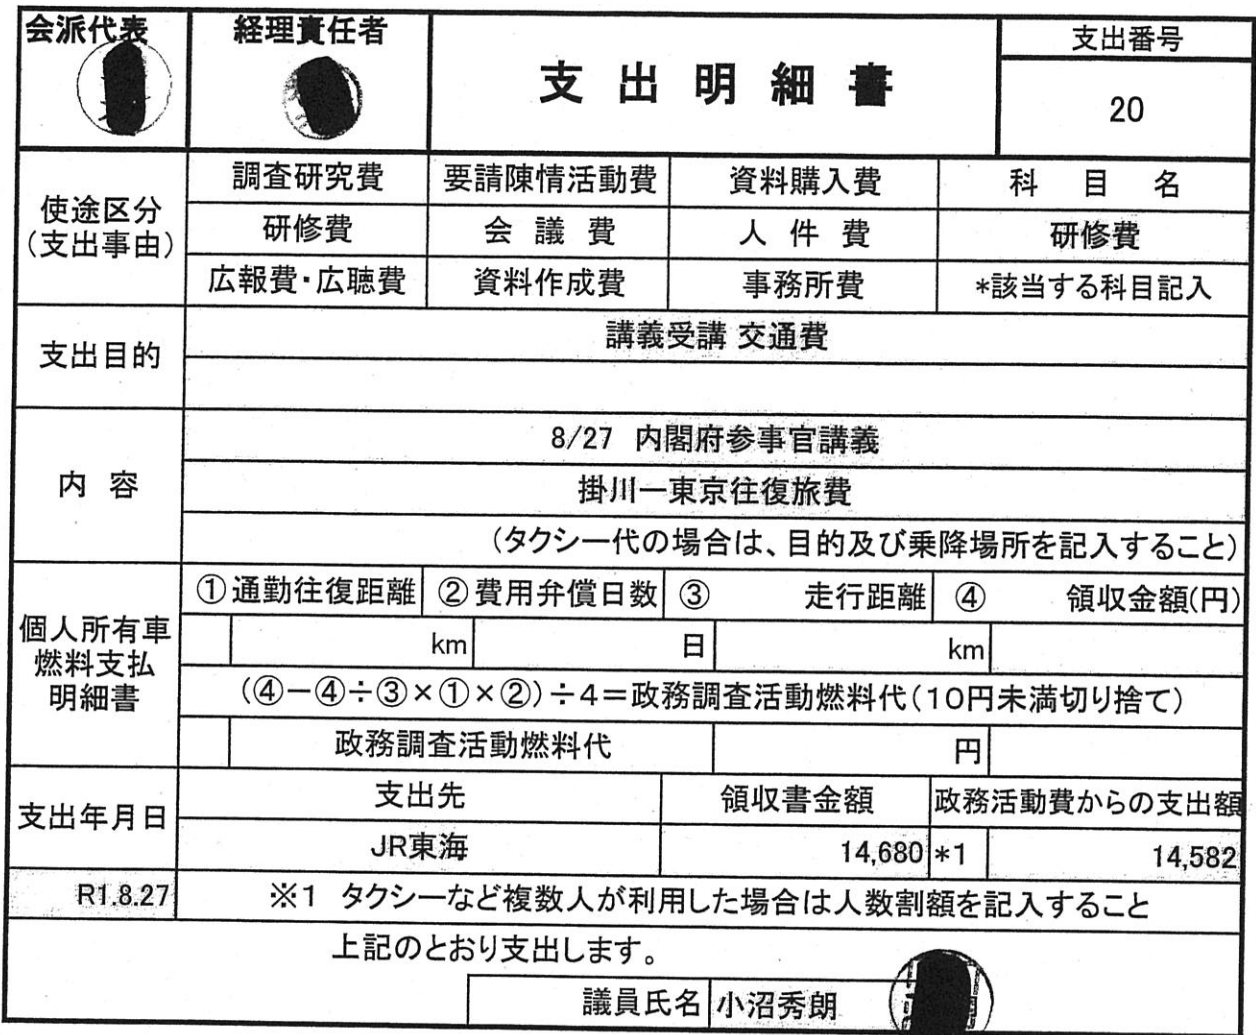 会派代表 経理責任者 支出明細書 支出番号
20
調査研究費 要請陳情活動費 資料購入費 科目名
使途区分
(支出事由)
研修費 会議費 人件費 研修費
広報費・広聴費 資料作成費 事務所費 *該当する科目記入
支出目的 講義受講 交通費
内容 8/27 内閣府参事官講義
掛川ー東京往復旅費
(タクシー代の場合は、目的及び乗降場所を記入すること)
個人所有車
燃料支払
明細書
①通勤往復距離 ②費用弁償日数 ③ 走行距離 ④ 領収金額(円)
km 日 km
(④-④÷③×①×②)÷4=政務調査活動燃料代(10円未満切り捨て)
政務調査活動燃料代 円
支出年月日 支出先 領収書金額 政務活動費からの支出額
JR東海 14,680 *1 14,582
R1.8.27 ※1 タクシーなど複数人が利用した場合は人数割額を記入すること
上記のとおり支出します。
議員氏名 小沼秀朗